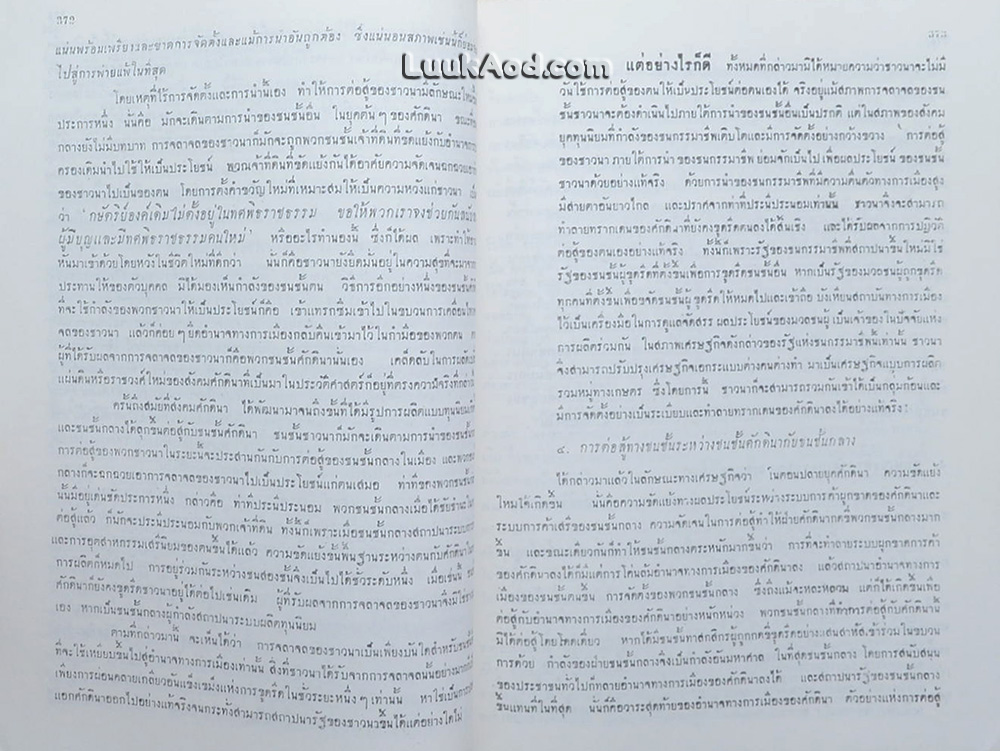 372
แน่นพร้อมเพรียงและขาดการจัดตั้งและแม้การนำอันถูกต้อง ซึ่งแน่นอนสภาพเช่นนี้ก็ย่อม
ไปสู่การพ่ายแพ้ในที่สุด
โดยเหตุที่ไร้การจัดตั้งและการนำนี้เอง ทำให้การต่อสู้ของชาวนามีลักษณะใหม่
ประการหนึ่ง นั่นคือ มักจะเดินตามการนำของชนชั้นอื่น ในยุคต้นๆ ของศักดินา ขณะที่
กลางยังไม่มีบทบาท การจลาจลของชาวนาก็มักจะถูกพวกชนชั้นเจ้าที่ดินที่ขัดแย้งกับอำนาจ
ครองเดิมนำไปใช้ให้เป็นประโยชน์ พวกเจ้าที่ดินที่ขัดแย้งกันได้อาศัยความจัดเจน
ของชาวนาไปเป็นของตน โดยการตั้งคำขวัญใหม่ที่เหมาะสมให้เป็นความหวังแก่ชาวนา เป็น
ว่า 'กษัตริย์องค์เดิมไม่ตั้งอยู่ในทศพิธราชธรรม ขอให้พวกเราจงช่วยกัน
ผู้มีบุญและมีทศพิธราชธรรมคนใหม่' หรืออะไรทำนองนี้ ซึ่งก็ได้ผล เพราะทำให้
หันมาเข้าด้วยโดยหวังในชีวิตใหม่ที่ดีกว่า นั่นก็คือชาวนายังยึดมั่นอยู่ในความสุขที่จะมาจาก
ประทานให้ของตัวบุคคล มิได้มองเห็นกำลังของชนชั้นตน วิธีการอีกอย่างหนึ่งของชนชั้น
ที่จะใช้กำลังของพวกชาวนาให้เป็นประโยชน์ก็คือ เข้าแทรกซึมเข้าไปในขบวนการเคลื่อน
จลของชาวนา แล้วก็ค่อยๆ ยึดอำนาจทางการเมืองกลับคืนเข้ามาไว้ในกำมือของพวกตน
ผู้ที่ได้รับผลจากการจลาจลของชาวนาก็คือพวกชนชั้นศักดินานั่นเอง เคล็ดลับในการผลัด
แผ่นดินหรือราชวงศ์ใหม่ของสังคมศักดินาที่เป็นมาในประวัติศาสตร์ก็อยู่ที่ตรงความจริงที่
ครั้นถึงสมัยที่สังคมศักดินา ได้พัฒนามาจนถึงขั้นที่ได้มีรูปการผลิตแบบทุนนิยม
และชนชั้นกลางได้ลุกขึ้นต่อสู้กับชนชั้นศักดินา ชนชั้นชาวนาก็มักจะเดินตามการนำของชนชั้น
การต่อสู้ของพวกชาวนาในระยะนี้จะประสานกันกับการต่อสู้ของชนชั้นกลางในเมือง และพวก
กลางก็จะฉกฉวยเอาการจลาจลของชาวนาไปเป็นประโยชน์แก่ตนเสมอ ท่าทีของพวกชนชั้น
นั้นมีอยู่เด่นชัดประการหนึ่ง กล่าวคือ ท่าทีประนีประนอม พวกชนชั้นกลางเมื่อได้ชัยชำนะใน
ต่อสู้แล้ว ก็มักจะประนีประนอมกับพวกเจ้าที่ดิน ทั้งนี้ก็เพราะเมื่อชนชั้นกลางสถาปนาระบบการ
และการอุตสาหกรรมเสรีนิยมของตนขึ้นได้แล้ว ความขัดแย้งขั้นพื้นฐานระหว่างตนกับศักดินาใน
การผลิตก็หมดไป การอยู่ร่วมกันระหว่างชนสองชั้นจึงเป็นไปได้ชั่วระดับหนึ่ง เมื่อเช่นนั้น
ศักดินาก็ยังคงขูดรีดชาวนาอยู่ได้ต่อไปเช่นเดิม ผู้ที่รับผลจากการจลาจลของชาวนาจึงมิใช่
เอง หากเป็นชนชั้นกลางผู้กำลังสถาปนาระบบผลิตทุนนิยม
ตามที่กล่าวมานี้ จะเห็นได้ว่า การจลาจลของชาวนาเป็นเพียงบันไดสำหรับชนชั้น
ที่จะใช้เหยียบขึ้นไปสู่อำนาจทางการเมืองเท่านั้น สิ่งที่ชาวนาได้รับจากการจลาจลนั้นอย่างมากก็
เพียงการผ่อนคลายเกลียวอันแข็งเขม็งแห่งการขูดรีดในชั่วระยะหนึ่งๆ เท่านั้น หาใช่เป็นการ
แอกศักดินาออกไปอย่างแท้จริงจนกระทั่งสามารถสถาปนารัฐของชาวนาขึ้นได้แต่อย่างใดไม่
LuukAod.com
373
แต่อย่างไรก็ดี ทั้งหมดที่กล่าวมามิได้หมายความว่าชาวนาจะไม่มี
วันใช้การต่อสู้ของตนให้เป็นประโยชน์ต่อตนเองได้ จริงอยู่แม้สภาพการจลาจลของชน
ชั้นชาวนาจะต้องดำเนินไปภายใต้การนำของชนชั้นอื่นเป็นปรกติ แต่ในสภาพของสังคม
ยุคทุนนิยมที่กำลังของชนกรรมาชีพเติบโตและมีการจัดตั้งอย่างกว้างขวาง การต่อสู้
ของชาวนา ภายใต้การนำ ของชนกรรมาชีพ ย่อมจักเป็นไป เพื่อผลประโยชน์ ของชนชั้น
ชาวนาด้วยอย่างแท้จริง ด้วยการนำของชนกรรมาชีพที่มีความตื่นตัวทางการเมืองสูง
มีสายตาอันยาวไกล และปราศจากท่าทีประนีประนอมเท่านั้น ชาวนาจึงจะสามารถ
ทำลายทรากเดนของศักดินาที่ยังคงขูดรีดตนเองได้สิ้นเชิง และได้รับผลจากการปฏิวัติ
ต่อสู้ของตนเองอย่างแท้จริง ทั้งนี้ก็เพราะรัฐของชนกรรมาชีพที่สถาปนาขึ้นใหม่มิใช่
รัฐของชนชั้นผู้ขูดรีดที่ตั้งขึ้นเพื่อการขูดรีดชนชั้นอื่น หากเป็นรัฐของมวลชนผู้ถูกขูดรีด
ทุกคนที่ตั้งขึ้นเพื่อขจัดชนชั้นผู้ขูดรีดให้หมดไปและเข้าถือ บังเหียนสถาบันทางการเมือง
ไว้เป็นเครื่องมือในการดูแลจัดสรร ผลประโยชน์ของมวลชนผู้เป็นเจ้าของในปัจจัยแห่ง
การผลิตร่วมกัน ในสภาพเศรษฐกิจดังกล่าวของรัฐแห่งชนกรรมาชีพนั้นเท่านั้น ชาวนา
จึงจะสามารถปรับปรุงเศรษฐกิจเอกระแบบต่างคนต่างทำ มาเป็นเศรษฐกิจแบบการผลิต
รวมหมู่ทางเกษตร ซึ่งโดยการนี้ ชาวนาก็จะสามารถรวมกันเข้าได้เป็นกลุ่มก้อนและ
มีการจัดตั้งอย่างเป็นระเบียบและทำลายทรากเดนของศักดินาลงได้อย่างแท้จริง!
๔. การต่อสู้ทางชนชั้นระหว่างชนชั้นศักดินากับชนชั้นกลาง
ได้กล่าวมาแล้วในลักษณะทางเศรษฐกิจว่า ในตอนปลายยุคศักดินา ความขัดแย้ง
ใหม่ได้เกิดขึ้น นั่นคือความขัดแย้งทางผลประโยชน์ระหว่างระบบการค้าผูกขาดของศักดินาและ
ระบบการค้าเสรีของชนชั้นกลาง ความจัดเจนในการต่อสู้ทำให้ฝ่ายศักดินากดขี่พวกชนชั้นกลางมาก
ขึ้น และขณะเดียวกันก็ทำให้ชนชั้นกลางตระหนักมากขึ้นว่า การที่จะทำลายระบบผูกขาดการค้า
ของศักดินาลงได้ก็มีแต่การโค่นล้มอำนาจทางการเมืองของศักดินาลง แล้วสถาปนาอำนาจทางการ
เมืองของชนชั้นตนขึ้น การจัดตั้งของพวกชนชั้นกลาง ซึ่งถึงแม้จะหละหลวม แต่ก็ได้เกิดขึ้นเพื่อ
ต่อสู้กับอำนาจทางการเมืองของศักดินาอย่างหนักหน่วง พวกชนชั้นกลางที่ทำการต่อสู้กับศักดินานี้
มิได้ต่อสู้โดยโดดเดี่ยว หากได้มีชนชั้นทาสกสิกรผู้ถูกกดขี่ขูดรีดอย่างแสนสาหัสเข้าร่วมในขบวน
การด้วย กำลังของฝ่ายชนชั้นกลางจึงเป็นกำลังอันมหาศาล ในที่สุดชนชั้นกลาง โดยการสนับสนุน
ของประชาชนทั่วไปก็ทลายอำนาจทางการเมืองของศักดินาลงได้ และสถาปนารัฐของชนชั้นกลาง
ขึ้นแทนที่ในที่สุด นั่นก็คือวาระสุดท้ายของอำนาจทางการเมืองของศักดินา ตัวอย่างแห่งการต่อสู้